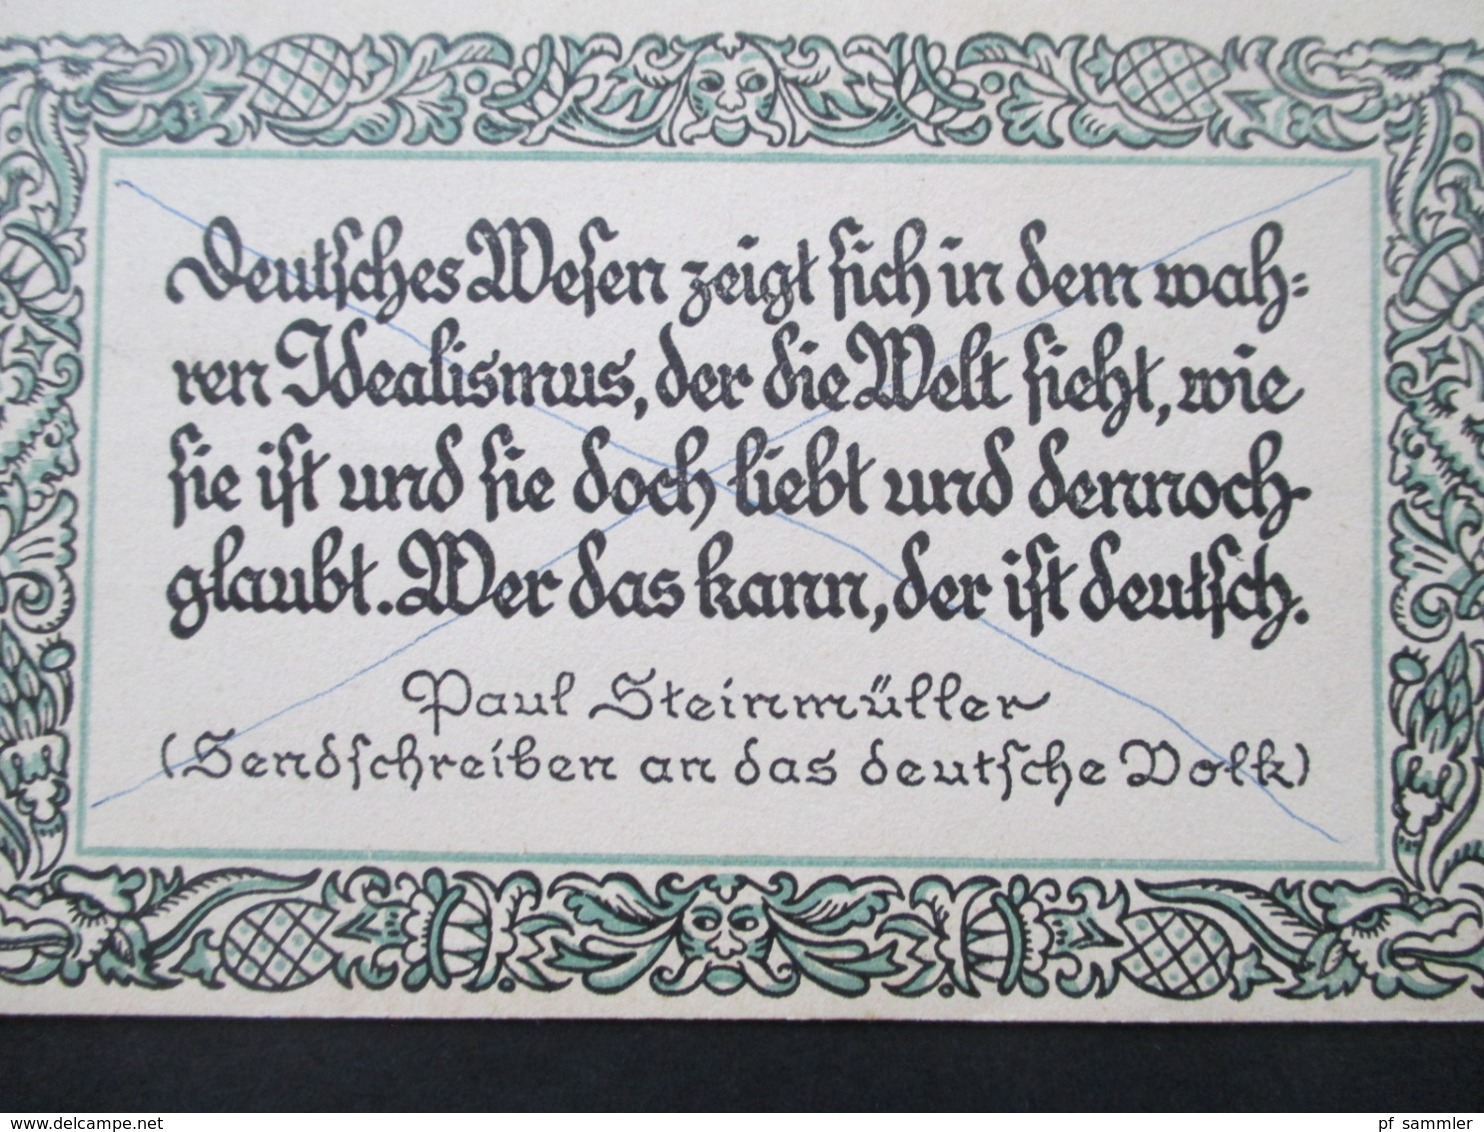 Deutsches Wesen zeigt sich in dem wah=
ren Idealismus, der die Welt sieht, wie
sie ist und sie doch liebt und dennoch
glaubt. Wer das kann, der ist deutsch.
Paul Steinmüller
(Sendschreiben an das deutsche Volk)
www.delcampe.net
pf_sammler